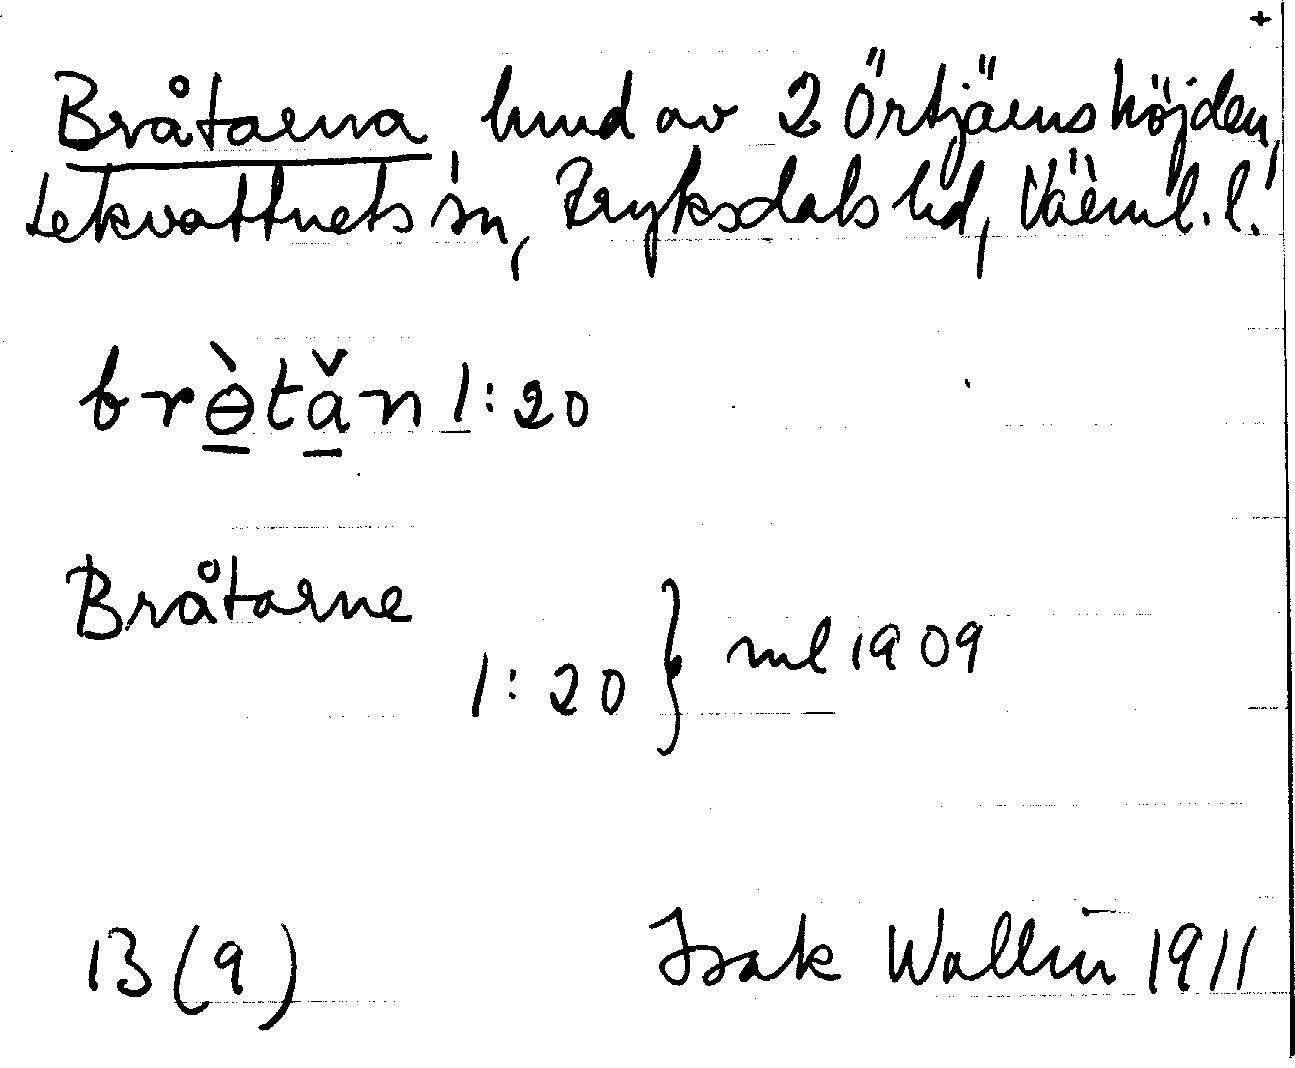 +
Bråtarna, hmd av 2 Örtjärnshöjden,
Lekvattnets sn, Fryksdals hd, Värml. l.
brɵ̀tǎn 1:20
Bråtarne
1:20 } ml 1909
B (9) Isak Wallin 1911